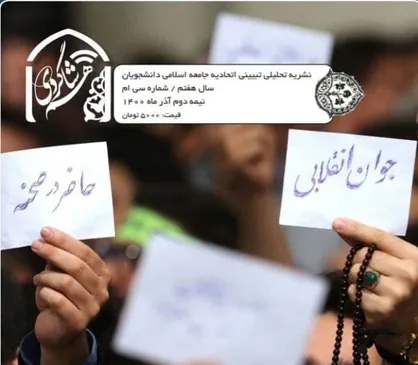 نشریه تحلیلی تبیینی اتحادیه جامعه اسلامی دانشجویان
سال هفتم / شماره سی ام
نیمه دوم آذر ماه ۱۴۰۰
قیمت: ۵۰۰۰ تومان
جوان انقلابی
حاضر در صحنه